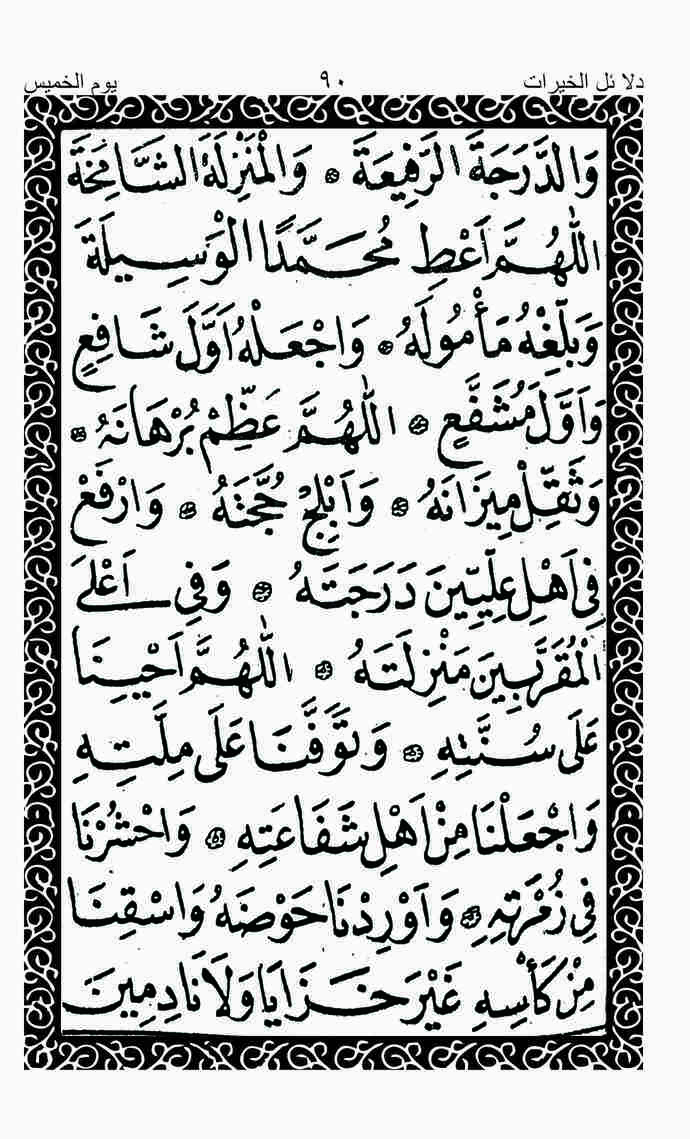 دلائل الخيرات ٩٠ يوم الخميس
وَالدَّرَجَةَ الرَّفِيعَةَ ۞ وَالْمَنْزِلَةَ الشَّامِخَةَ
اَللّٰهُمَّ اَعْطِ مُحَمَّدًا الْوَسِيلَةَ
وَبَلِّغْهُ مَأْمُولَهُ ۞ وَاجْعَلْهُ اَوَّلَ شَافِعٍ
وَاَوَّلَ مُشَفَّعٍ ۞ اَللّٰهُمَّ عَظِّمْ بُرْهَانَهُ ۞
وَثَقِّلْ مِيزَانَهُ ۞ وَاَبْلِجْ حُجَّتَهُ ۞ وَارْفَعْ
فِي اَهْلِ عِلِّيِّينَ دَرَجَتَهُ ۞ وَفِي اَعْلَى
الْمُقَرَّبِينَ مَنْزِلَتَهُ ۞ اَللّٰهُمَّ اَحْيِنَا
عَلَى سُنَّتِهِ ۞ وَتَوَفَّنَا عَلَى مِلَّتِهِ
وَاجْعَلْنَا مِنْ اَهْلِ شَفَاعَتِهِ ۞ وَاحْشُرْنَا
فِي زُمْرَتِهِ ۞ وَاَوْرِدْنَا حَوْضَهُ وَاسْقِنَا
مِنْ كَأْسِهِ غَيْرَ خَزَايَا وَلَا نَادِمِينَ